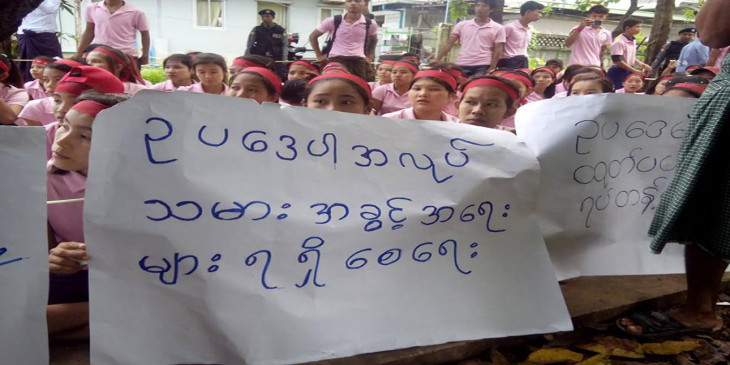 ဥပဒေပါအလုပ်
သမားအခွင့်အရေး
များရရှိစေရေး
ဥပဒေ
ထုတ်ပ
ရပ်တန့်